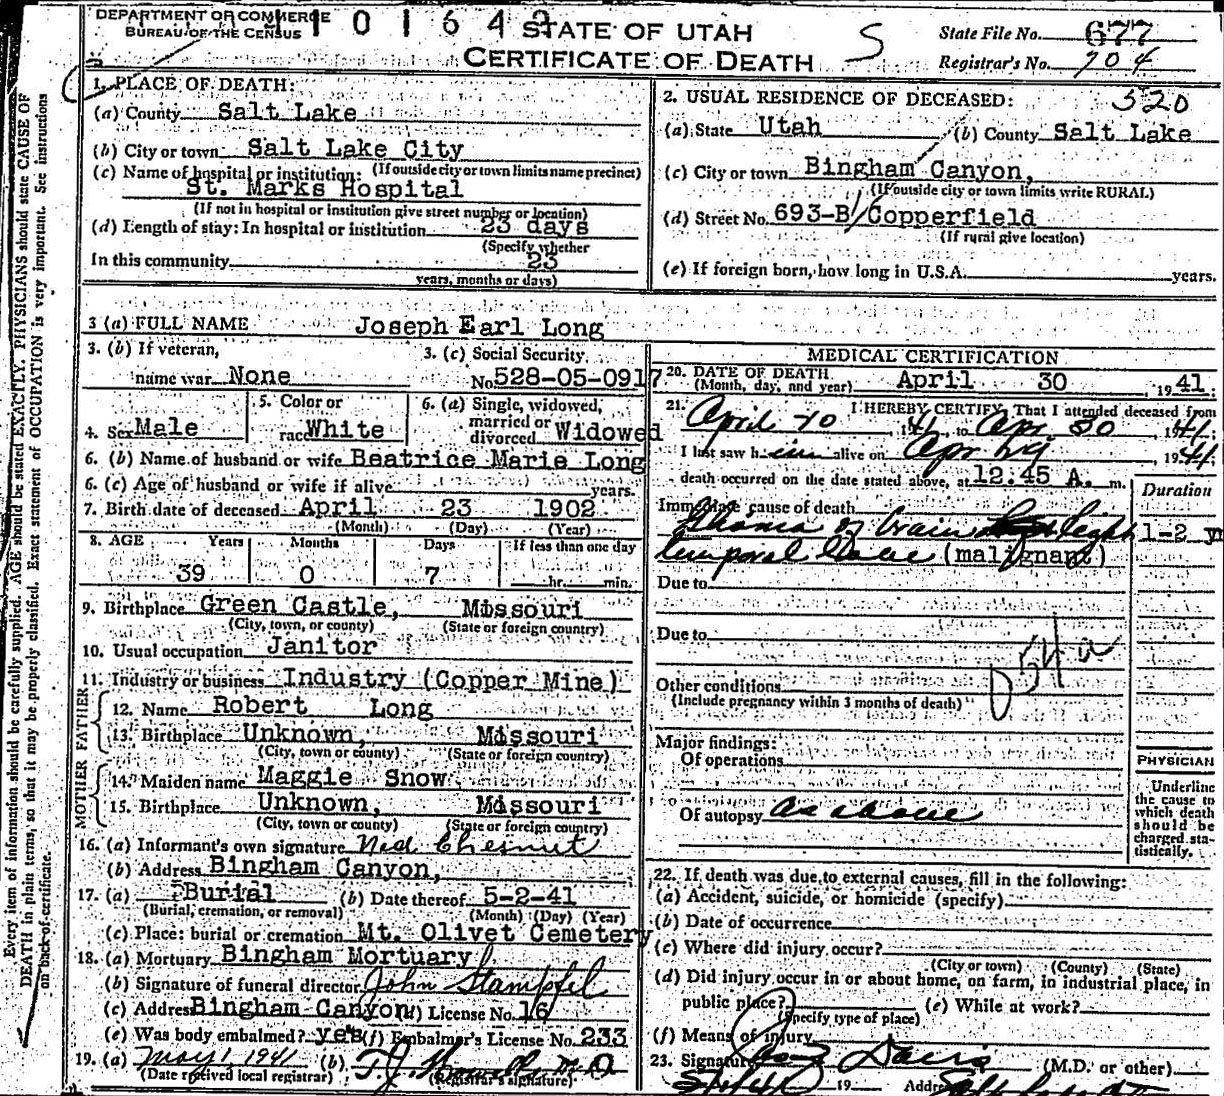 DEPARTMENT OF COMMERCE
BUREAU OF THE CENSUS
STATE OF UTAH
CERTIFICATE OF DEATH
S
State File No. 677
Registrar's No. 704
1. PLACE OF DEATH:
(a) County Salt Lake
(b) City or town Salt Lake City
(If outside city or town limits name precinct)
(c) Name of hospital or institution:
St. Marks Hospital
(If not in hospital or institution give street number or location)
(d) Length of stay: In hospital or institution 23 days
(Specify whether
In this community 23
years, months or days)
2. USUAL RESIDENCE OF DECEASED: 520
(a) State Utah (b) County Salt Lake
(c) City or town Bingham Canyon,
(If outside city or town limits write RURAL)
(d) Street No. 693-B Copperfield
(If rural give location)
(e) If foreign born, how long in U.S.A. years.
3 (a) FULL NAME Joseph Earl Long
3. (b) If veteran,
name war None
3. (c) Social Security
No. 528-05-0917
4. Sex Male
5. Color or
race White
6. (a) Single, widowed,
married or
divorced Widowed
6. (b) Name of husband or wife Beatrice Marie Long
6. (c) Age of husband or wife if alive years.
7. Birth date of deceased April 23 1902
(Month) (Day) (Year)
8. AGE Years Months Days If less than one day
39 0 7 hr. min.
9. Birthplace Green Castle, Missouri
(City, town, or county) (State or foreign country)
10. Usual occupation Janitor
11. Industry or business Industry (Copper Mine)
FATHER
12. Name Robert Long
13. Birthplace Unknown, Missouri
(City, town or county) (State or foreign country)
MOTHER
14. Maiden name Maggie Snow
15. Birthplace Unknown, Missouri
(City, town or county) (State or foreign country)
16. (a) Informant's own signature Ned Chesnut
(b) Address Bingham Canyon,
17. (a) Burial (b) Date thereof 5-2-41
(Burial, cremation, or removal) (Month) (Day) (Year)
(c) Place: burial or cremation Mt. Olivet Cemetery
18. (a) Mortuary Bingham Mortuary
(b) Signature of funeral director John Stampfel
(c) Address Bingham Canyon License No. 16
(e) Was body embalmed? yes (f) Embalmer's License No. 233
19. (a) May 1, 1941 (b)
(Date received local registrar) (Registrar's signature)
MEDICAL CERTIFICATION
20. DATE OF DEATH
(Month, day, and year) April 30 1941
21. I HEREBY CERTIFY, That I attended deceased from
April 10, 1941 to Apr 30, 1941
I last saw him alive on Apr 29 1941
death occurred on the date stated above, at 12:45 A. m.
Duration
Immediate cause of death
Glioma of brain Right 1-2 yr
temporal (malignant)
Due to
Due to
Other conditions
(Include pregnancy within 3 months of death)
Major findings:
Of operations
Of autopsy as above
PHYSICIAN
Underline
the cause to
which death
should be
charged sta-
tistically.
22. If death was due to external causes, fill in the following:
(a) Accident, suicide, or homicide (specify)
(b) Date of occurrence
(c) Where did injury occur?
(City or town) (County) (State)
(d) Did injury occur in or about home, on farm, in industrial place, in
public place? (e) While at work?
(Specify type of place)
(f) Means of injury
23. Signature Davis (M.D. or other)
19 Address
Every item of information should be carefully supplied. AGE should be stated EXACTLY. PHYSICIANS should state CAUSE OF
DEATH in plain terms, so that it may be properly classified. Exact statement of OCCUPATION is very important. See instructions
on back of certificate.